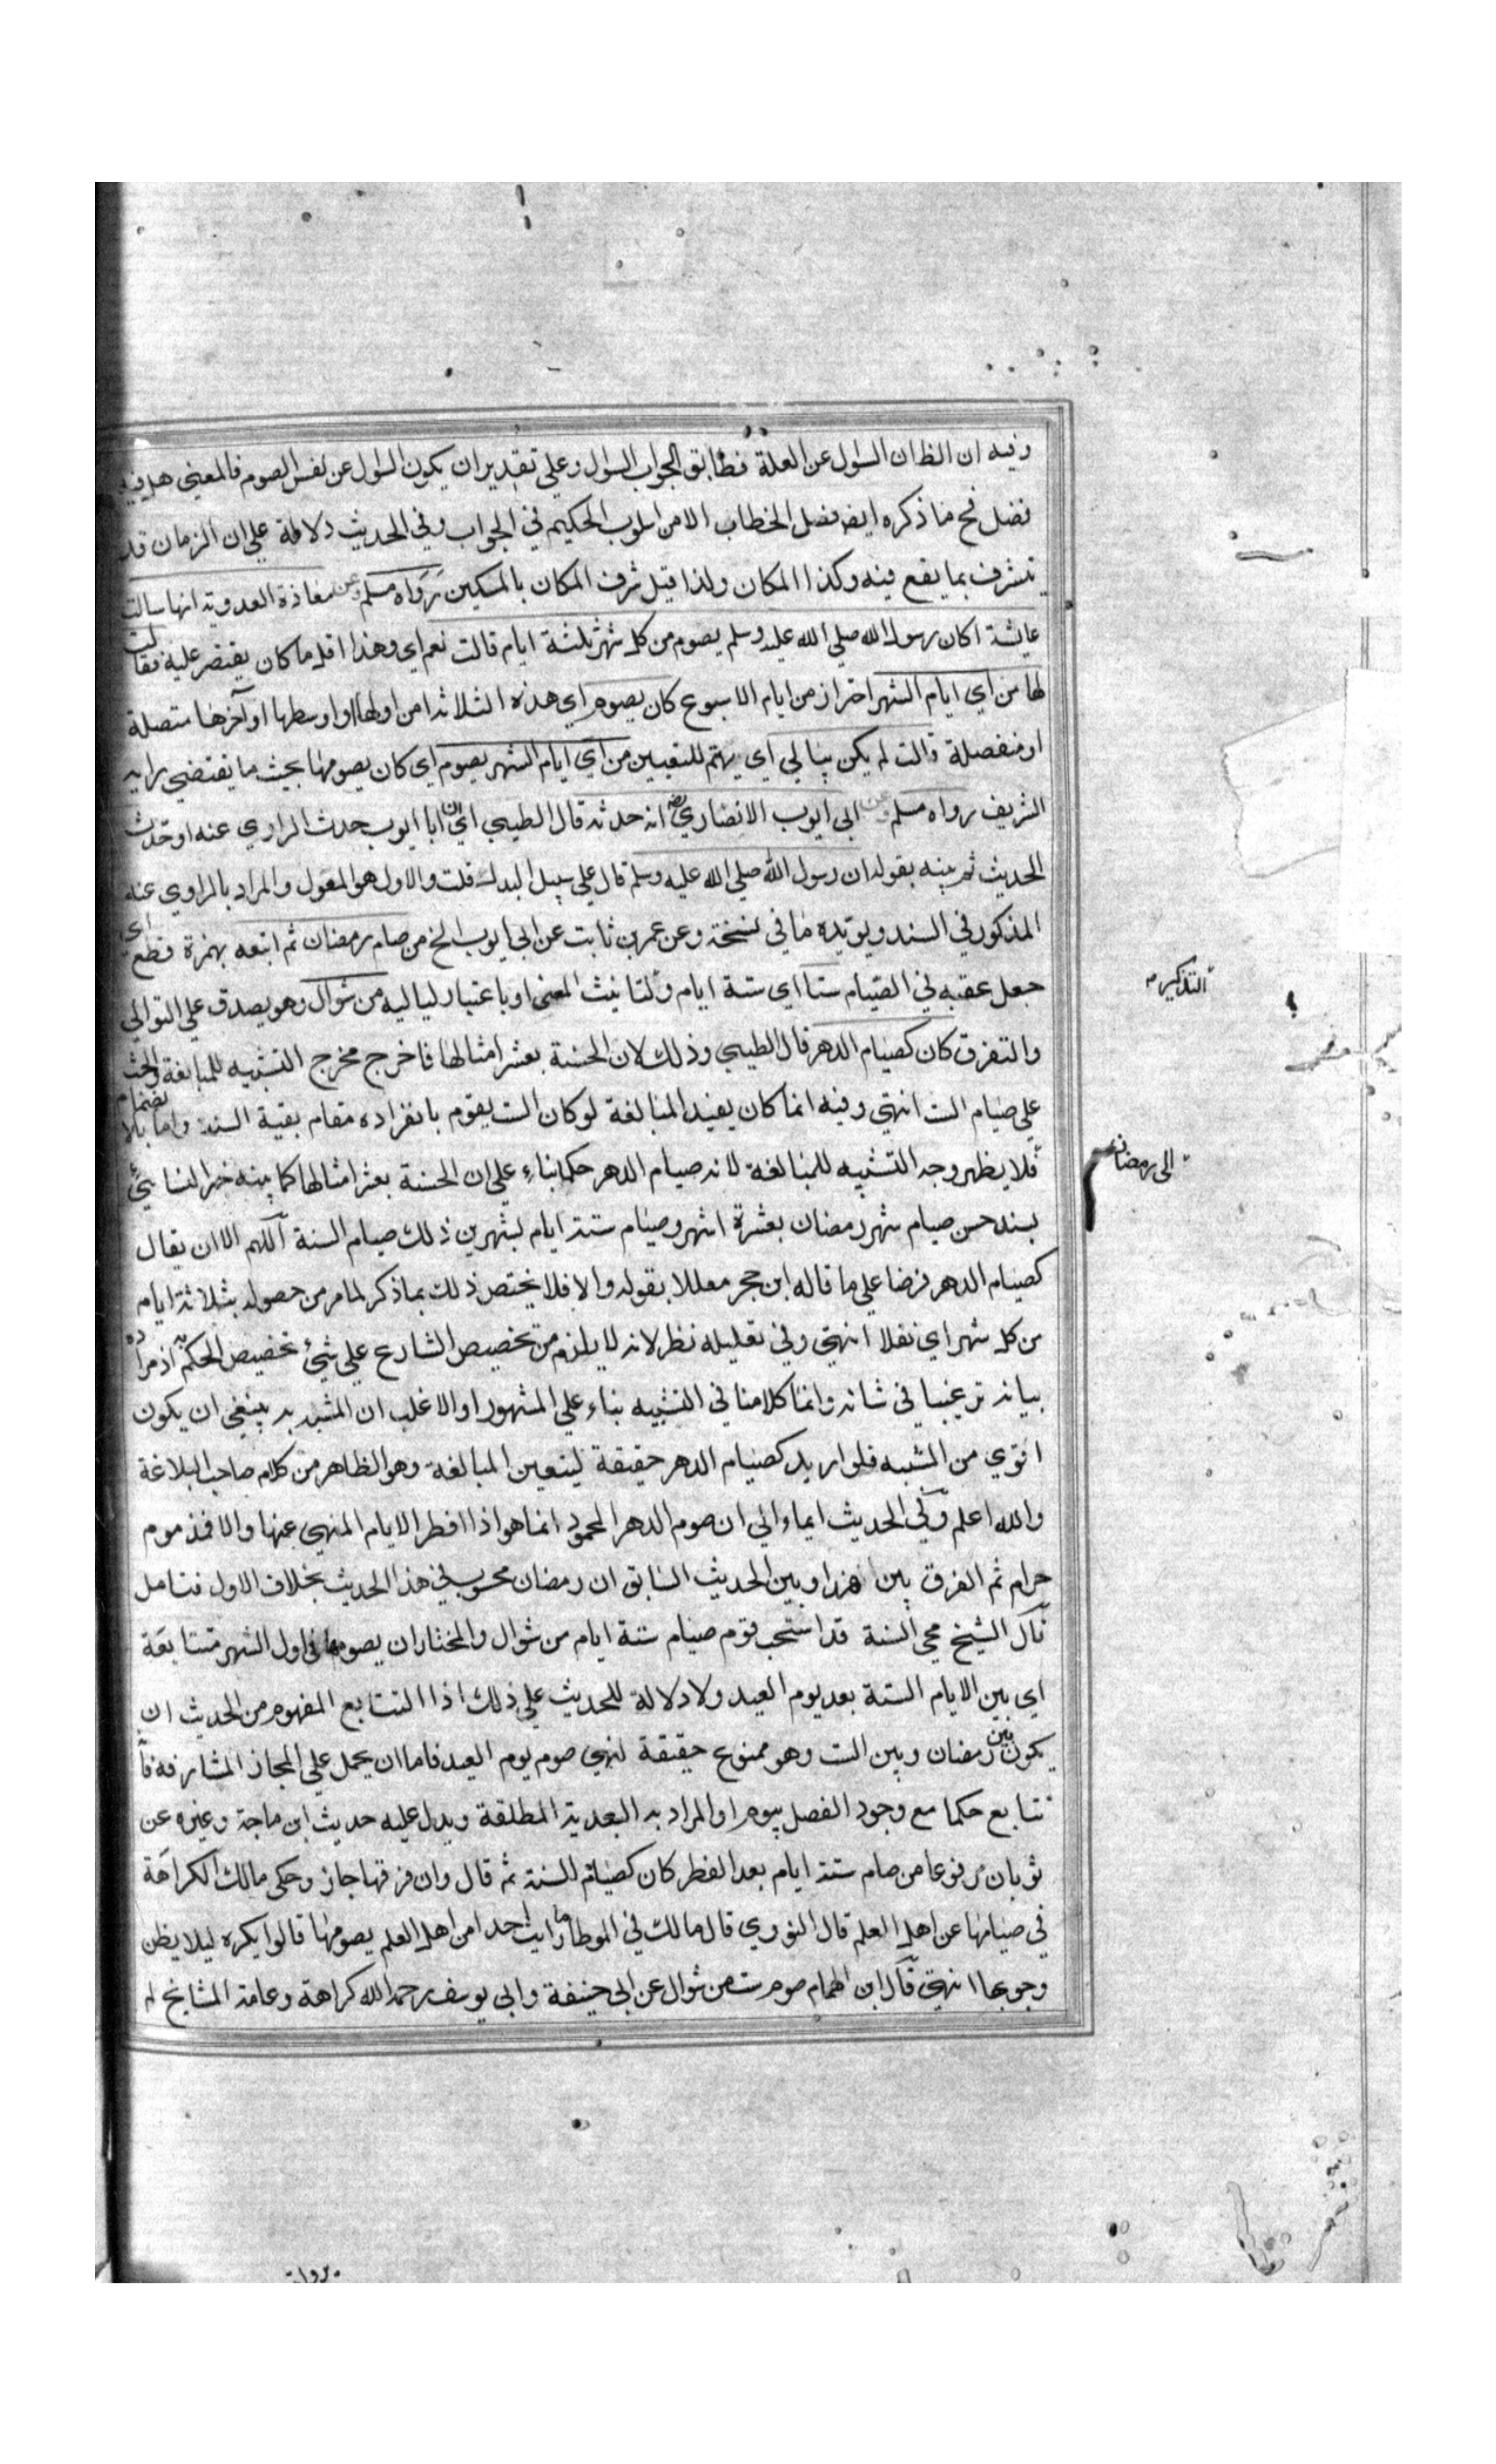 وفيه ان الظ ان السؤل عن العلة فطابق الجواب السؤال وعلي تقديران يكون السؤل عن نفس الصوم فالمعني هل فيه
فضل فح ما ذكره ايضه فصل الخطاب الا من اسلوب الحكيم في الجواب وفي الحديث دلالة علي ان الزمان قد
يتشرف بما يقع فيه وكذا المكان ولذا قيل شرف المكان بالمسكين رواه مسلم وعن معاذة العدوية انها سالت
عايشة اكان رسول الله صلي الله عليه وسلم يصوم من كل شهر ثلثة ايام قالت نعم اي وهذا اقل ما كان يقتصر عليه فقالت
لها من اي ايام الشهر احتراز من ايام الاسبوع كان يصوم اي هذه الثلاثة امن اولها او اوسطها او آخرها متصلة
او منفصلة قالت لم يكن يبالي اي يهتم للتعيين من اي ايام الشهر يصوم اي كان يصومها بحيث ما يقتضي رايه
الشريف رواه مسلم وعن ابي ايوب الانصاري رضه انه حدثه قال الطيبي اي ان ابا ايوب حدث الراوي عنه او حدث
الحديث ثم بينه بقوله ان رسول الله صلي الله عليه وسلم قال علي سبيل البدل قلت والاول هو المعول والمراد بالراوي عنه
المذكور في السند ويؤيده ما في نسخة وعن عمر بن ثابت عن ابي ايوب الخ من صام رمضان ثم اتبعه بهمزة قطع اي
جعل عقبه في الصيام ستا اي ستة ايام ولتانيث المعني او باعتبار لياليه من شوال وهو يصدق علي التوالي
والتفرق كان كصيام الدهر قال الطيبي وذلك لان الحسنة بعشر امثالها فاخرج مخرج التشبيه للمبالغة والحث
علي صيام الست انتهي وفيه انما كان يفيد المبالغة لو كان الست يقوم بانفراده مقام بقية السنة واما بالانضمام
فلا يظهر وجه التشبيه للمبالغة لانه صيام الدهر حكما بناء علي ان الحسنة بعشر امثالها كما بينه خبر النسائي
بسند حسن صيام شهر رمضان بعشرة اشهر وصيام ستة ايام بشهرين ذلك صيام السنة اللهم الا ان يقال
كصيام الدهر فرضا علي ما قاله ابن حجر معللا بقوله والا فلا يختص ذلك بما ذكر لما مر من حصوله بثلاثة ايام
من كل شهر اي نفلا انتهي وفي تعليله نظر لانه لا يلزم من تخصيص الشارع علي شئ تخصيص الحكم به اذ مراده
بيانه ترغيبا في شانه وانما كلامنا في التشبيه بناء علي المشهور او الاغلب ان المشبه به ينبغي ان يكون
اقوي من المشبه فلو اريد كصيام الدهر حقيقة ليتعين المبالغة وهو الظاهر من كلام صاحب البلاغة
والله اعلم وفي الحديث ايماء الي ان صوم الدهر المحمود انما هو اذا افطر الايام المنهي عنها والا فمذموم
حرام ثم الفرق بين هذا وبين الحديث السابق ان رمضان محسوب في هذا الحديث بخلاف الاول فتامل
قال الشيخ محي السنة قد استحب قوم صيام ستة ايام من شوال والمختار ان يصومها في اول الشهر متتابعة
اي بين الايام الستة بعد يوم العيد ولا دلالة للحديث علي ذلك اذ التتابع المفهوم من الحديث ان
يكون بين رمضان وبين الست وهو ممنوع حقيقة لنهي صوم يوم العيد فاما ان يحمل علي المجاز المشارفة فا
تتابع حكما مع وجود الفصل بيوم او المراد به البعدية المطلقة ويدل عليه حديث ابن ماجة وغيره عن
ثوبان مرفوعا من صام ستة ايام بعد الفطر كان كصيام السنة ثم قال وان فرقها جاز وحكي مالك الكراهة
في صيامها عن اهل العلم قال النووي قال مالك في الموطا ما رايت احدا من اهل العلم يصومها قالوا يكره ليلا يظن
وجوبها انتهي قال ابن الهمام صوم ست من شوال عن ابي حنيفة وابي يوسف رحمه الله كراهة وعامة المشايخ لم
التذكير م
الي رمضان